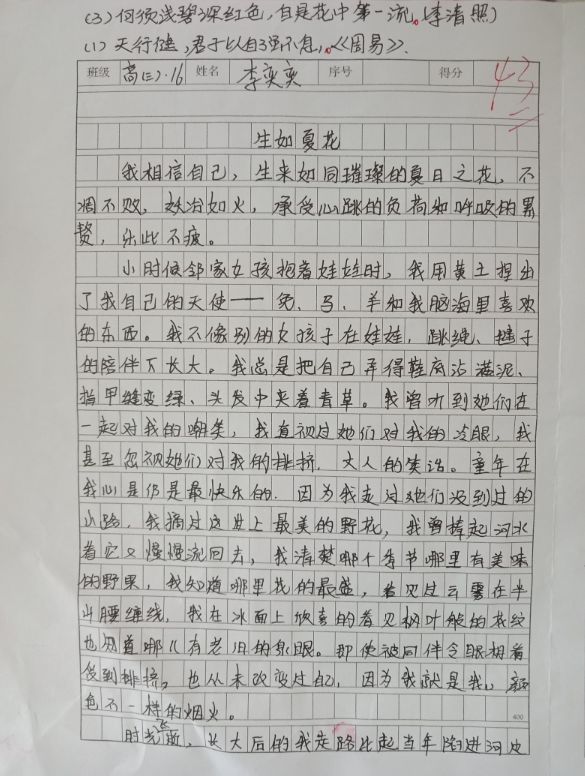 (3) 何须浅碧深红色,自是花中第一流。(李清照)
(1) 天行健,君子以自强不息。《周易》.
班级 高(三)·16 姓名 李奕奕 序号 得分 43
生如夏花
我相信自己,生来如同璀璨的夏日之花,不
凋不败,妖冶如火,承受心跳的负荷和呼吸的累
赘,乐此不疲。
小时候邻家女孩抱着娃娃时,我用黄土捏出
了我自己的天使——兔、马、羊和我脑海里喜欢
的东西。我不像别的女孩子在娃娃,跳绳、毽子
的陪伴下长大。我总是把自己弄得鞋底沾满泥、
指甲缝变绿、头发中夹着青草。我曾听到她们在
一起对我的嘲笑,我直视过她们对我的冷眼,我
甚至忽视她们对我的排挤.大人的笑话。童年在
我心是仍是最快乐的.因为我走过她们没到过的
山路.我摘过这世上最美的野花,我曾捧起河水
看它又慢慢流回去,我清楚哪个季节哪里有美味
的野果,我知道哪里花的最盛,看见过云雾在半
山腰缠绕,我在冰面上欣喜的看见树叶般的花纹
也知道哪儿有老旧的泉眼。即使被同伴冷眼相看
受到排挤,也从未改变过自己,因为我就是我,颜
色不一样的烟火。
400
时光飞逝,长大后的我走路比起当年陷进河边